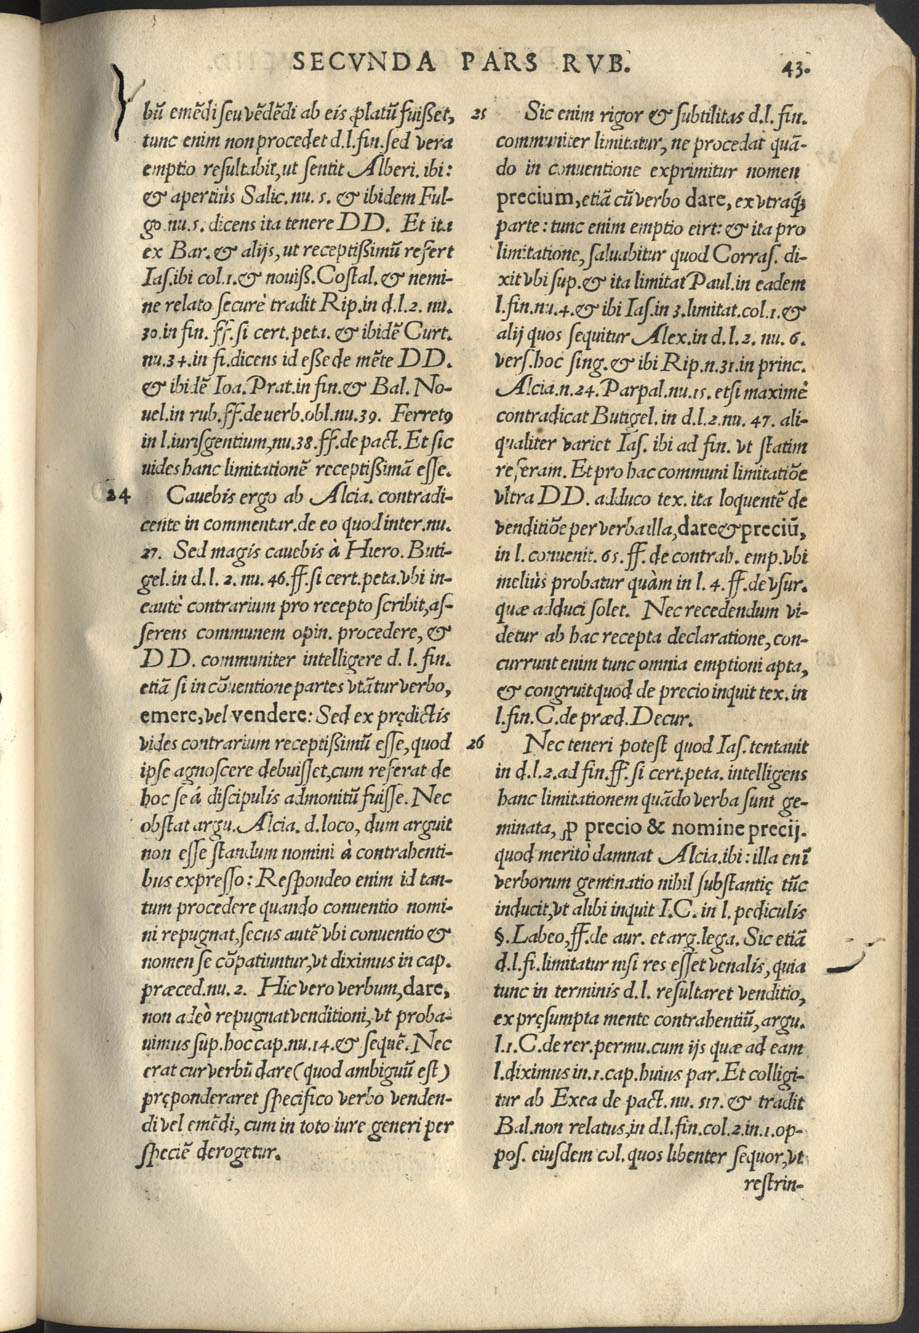 SECVNDA PARS RVB.
43.
bũ emẽdi seu vẽdẽdi ab eis ꝓlatũ fuißet,
tunc enim non procedet d.l.fin. sed vera
emptio resultabit, ut sentit Alberi. ibi:
& apertiùs Salic. nu. 5. & ibidem Ful-
go. nu. 5. dicens ita tenere DD. Et ita
ex Bar. & alijs, ut receptißimũ refert
Ias. ibi col. 1. & nouiß. Costal. & nemi-
ne relato securè tradit Rip. in d. l. 2. nu.
30. in fin. ff. si cert. peta. & ibidẽ Curt.
nu. 34. in fi. dicens id eße de mẽte DD.
& ibidẽ Ioa. Prat. in fin. & Bal. No-
uel. in rub. ff. de uerb. obl. nu. 39. Ferret9
in l. iurisgentium, nu. 38. ff. de pact. Et sic
uides hanc limitationẽ receptißimã esse.
24 Cauebis ergo ab Alcia. contradi-
cente in commentar. de eo quod inter. nu.
27. Sed magis cauebis à Hiero. Buti-
gel. in d. l. 2. nu. 46. ff. si cert. peta. vbi in-
cautè contrarium pro recepto scribit, as-
serens communem opin. procedere, &
DD. communiter intelligere d. l. fin.
etiã si in cõuentione partes vtãtur verbo,
emere, vel vendere: Sed ex prędictis
vides contrarium receptißimũ esse, quod
ipse agnoscere debuisset, cum referat de
hoc se á discipulis admonitũ fuisse. Nec
obstat argu. Alcia. d. loco, dum arguit
non esse standum nomini à contrahenti-
bus expresso: Respondeo enim id tan-
tum procedere quando conuentio nomi-
ni repugnat, secus autẽ vbi conuentio &
nomen se cõpatiuntur, vt diximus in cap.
præced. nu. 2. Hic vero verbum, dare,
non adeò repugnat venditioni, vt proba-
uimus sup. hoc cap. nu. 14. & sequẽ. Nec
erat cur verbũ dare (quod ambiguũ est)
pręponderaret specifico verbo venden-
di vel emẽdi, cum in toto iure generi per
speciẽ derogetur.
25 Sic enim rigor & subtilitas d. l. fin.
communiter limitatur, ne procedat quã-
do in conuentione exprimitur nomen
precium, etiã cũ verbo dare, ex vtraq;
parte: tunc enim emptio eirt: & ita pro
limitatione, saluabitur quod Corras. di-
xit vbi sup. & ita limitat Paul. in eadem
l. fin. nu. 4. & ibi Ias. in 3. limitat. col. 1. &
alij quos sequitur Alex. in d. l. 2. nu. 6.
vers. hoc sing. & ibi Rip. n. 31. in princ.
Alcia. n. 24. Parpal. nu. 15. etsi maximè
contradicat Butigel. in d. l. 2. nu. 47. ali-
qualiter variet Ias. ibi ad fin. vt statim
referam. Et pro hac communi limitatiõe
vltra DD. adduco tex. ita loquentẽ de
venditiõe per verba illa, dare & preciũ,
in l. conuenit. 65. ff. de contrah. emp. vbi
meliùs probatur quàm in l. 4. ff. de vsur.
quæ adduci solet. Nec recedendum vi-
detur ab hac recepta declaratione, con-
currunt enim tunc omnia emptioni apta,
& congruit quod de precio inquit tex. in
l. fin. C. de præd. Decur.
26 Nec teneri potest quod Ias. tentauit
in d. l. 2. ad fin. ff. si cert. peta. intelligens
hanc limitationem quãdo verba sunt ge-
minata, ꝓ precio & nomine precij.
quod meritò damnat Alcia. ibi: illa enĩ
verborum geminatio nihil substantię tũc
inducit, vt alibi inquit I.C. in l. pediculis
§. Labeo, ff. de aur. et arg. lega. Sic etiã
d. l. fi. limitatur nisi res esset venalis, quia
tunc in terminis d. l. resultaret venditio,
ex pręsumpta mente contrahentiũ, argu.
l. 1. C. de rer. permu. cum ijs quæ ad eam
l. diximus in. 1. cap. huius par. Et colligi-
tur ab Exea de pact. nu. 517. & tradit
Bal. non relatus, in d. l. fin. col. 2. in. 1. op-
pos. eiusdem col. quos libenter sequor, vt
restrin-